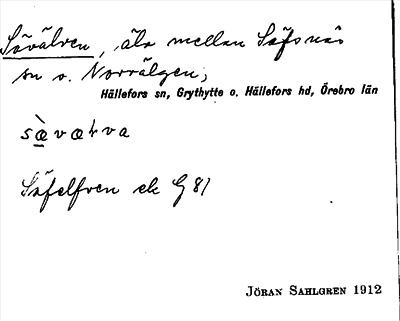 Sävälven, älv mellan Säfsnäs
sn o. Norrälgen;
Hällefors sn, Grythytte o. Hällefors hd, Örebro län
sæ̀væłva
Säfelfven ek G 81
JÖRAN SAHLGREN 1912